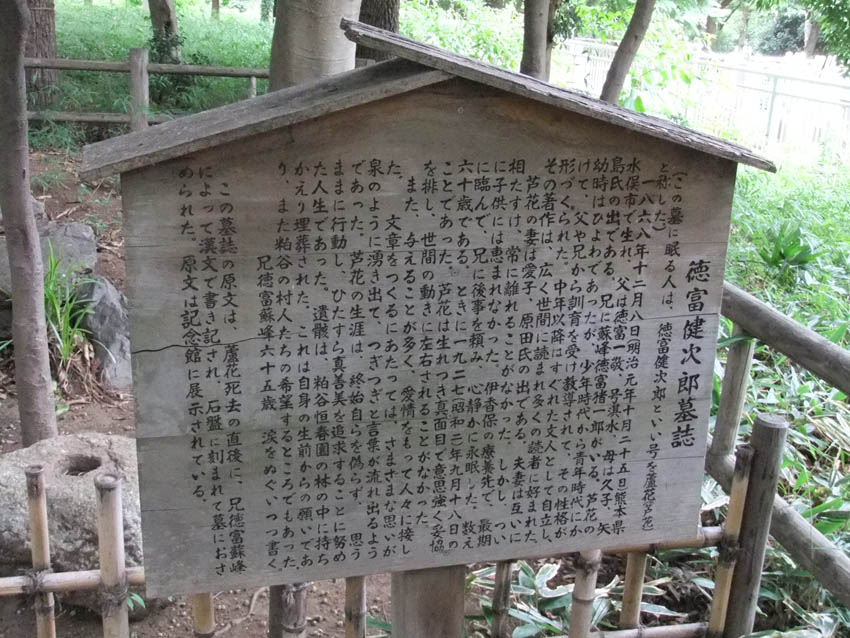 徳富健次郎墓誌
(この墓に眠る人は、徳富健次郎といい号を蘆花(芦花)
と称した)
一八六八年十二月八日(明治元年十月二十五日)熊本県
水俣市で生れ、父は徳富一敬、号淇水、母は久子、矢
島氏の出である。兄に蘇峰徳富猪一郎がいる。芦花の
幼時はひよわであったが、少年時代から青年時代にか
けて、父や兄から訓育を受け教導されて、その性格が
形づくられた。中年以降はすぐれた文人として自立し、
その著作は、広く世間に読まれ多くの読者に好まれた。
芦花の妻は愛子、原田氏の出である。夫妻は互いに
相たすけ、常に離れることがなかった。しかし、つい
に子供には恵まれなかった。伊香保の療養先で、最期
に臨んで、兄に後事を頼み、心静かに永眠した。数え
六十歳である。ときに一九二七(昭和二)年九月十八日の
ことであった。芦花は生れつき真面目で意思強く妥協
を排し、世間の動きに左右されることがなかった。
また、与えることが多く、愛情をもって人々に接し
た。文章をつくるにあたっては、さまざまな思いが
泉のように湧き出て、つぎつぎと言葉が流れ出るよう
であった。芦花の生涯は、終始自らを偽らず、思う
ままに行動し、ひたすら真善美を追求することに努め
た人生であった。遺骸は、粕谷恒春園の林の中に持ち
かえり埋葬された。これは自身の生前からの願いであ
り、また粕谷の村人たちの希望するところでもあった。
兄徳富蘇峰六十五歳 涙をぬぐいつつ書く
この墓誌の原文は、蘆花死去の直後に、兄徳富蘇峰
によって漢文で書き記され、石盤に刻まれて墓におさ
められた。原文は記念館に展示されている。